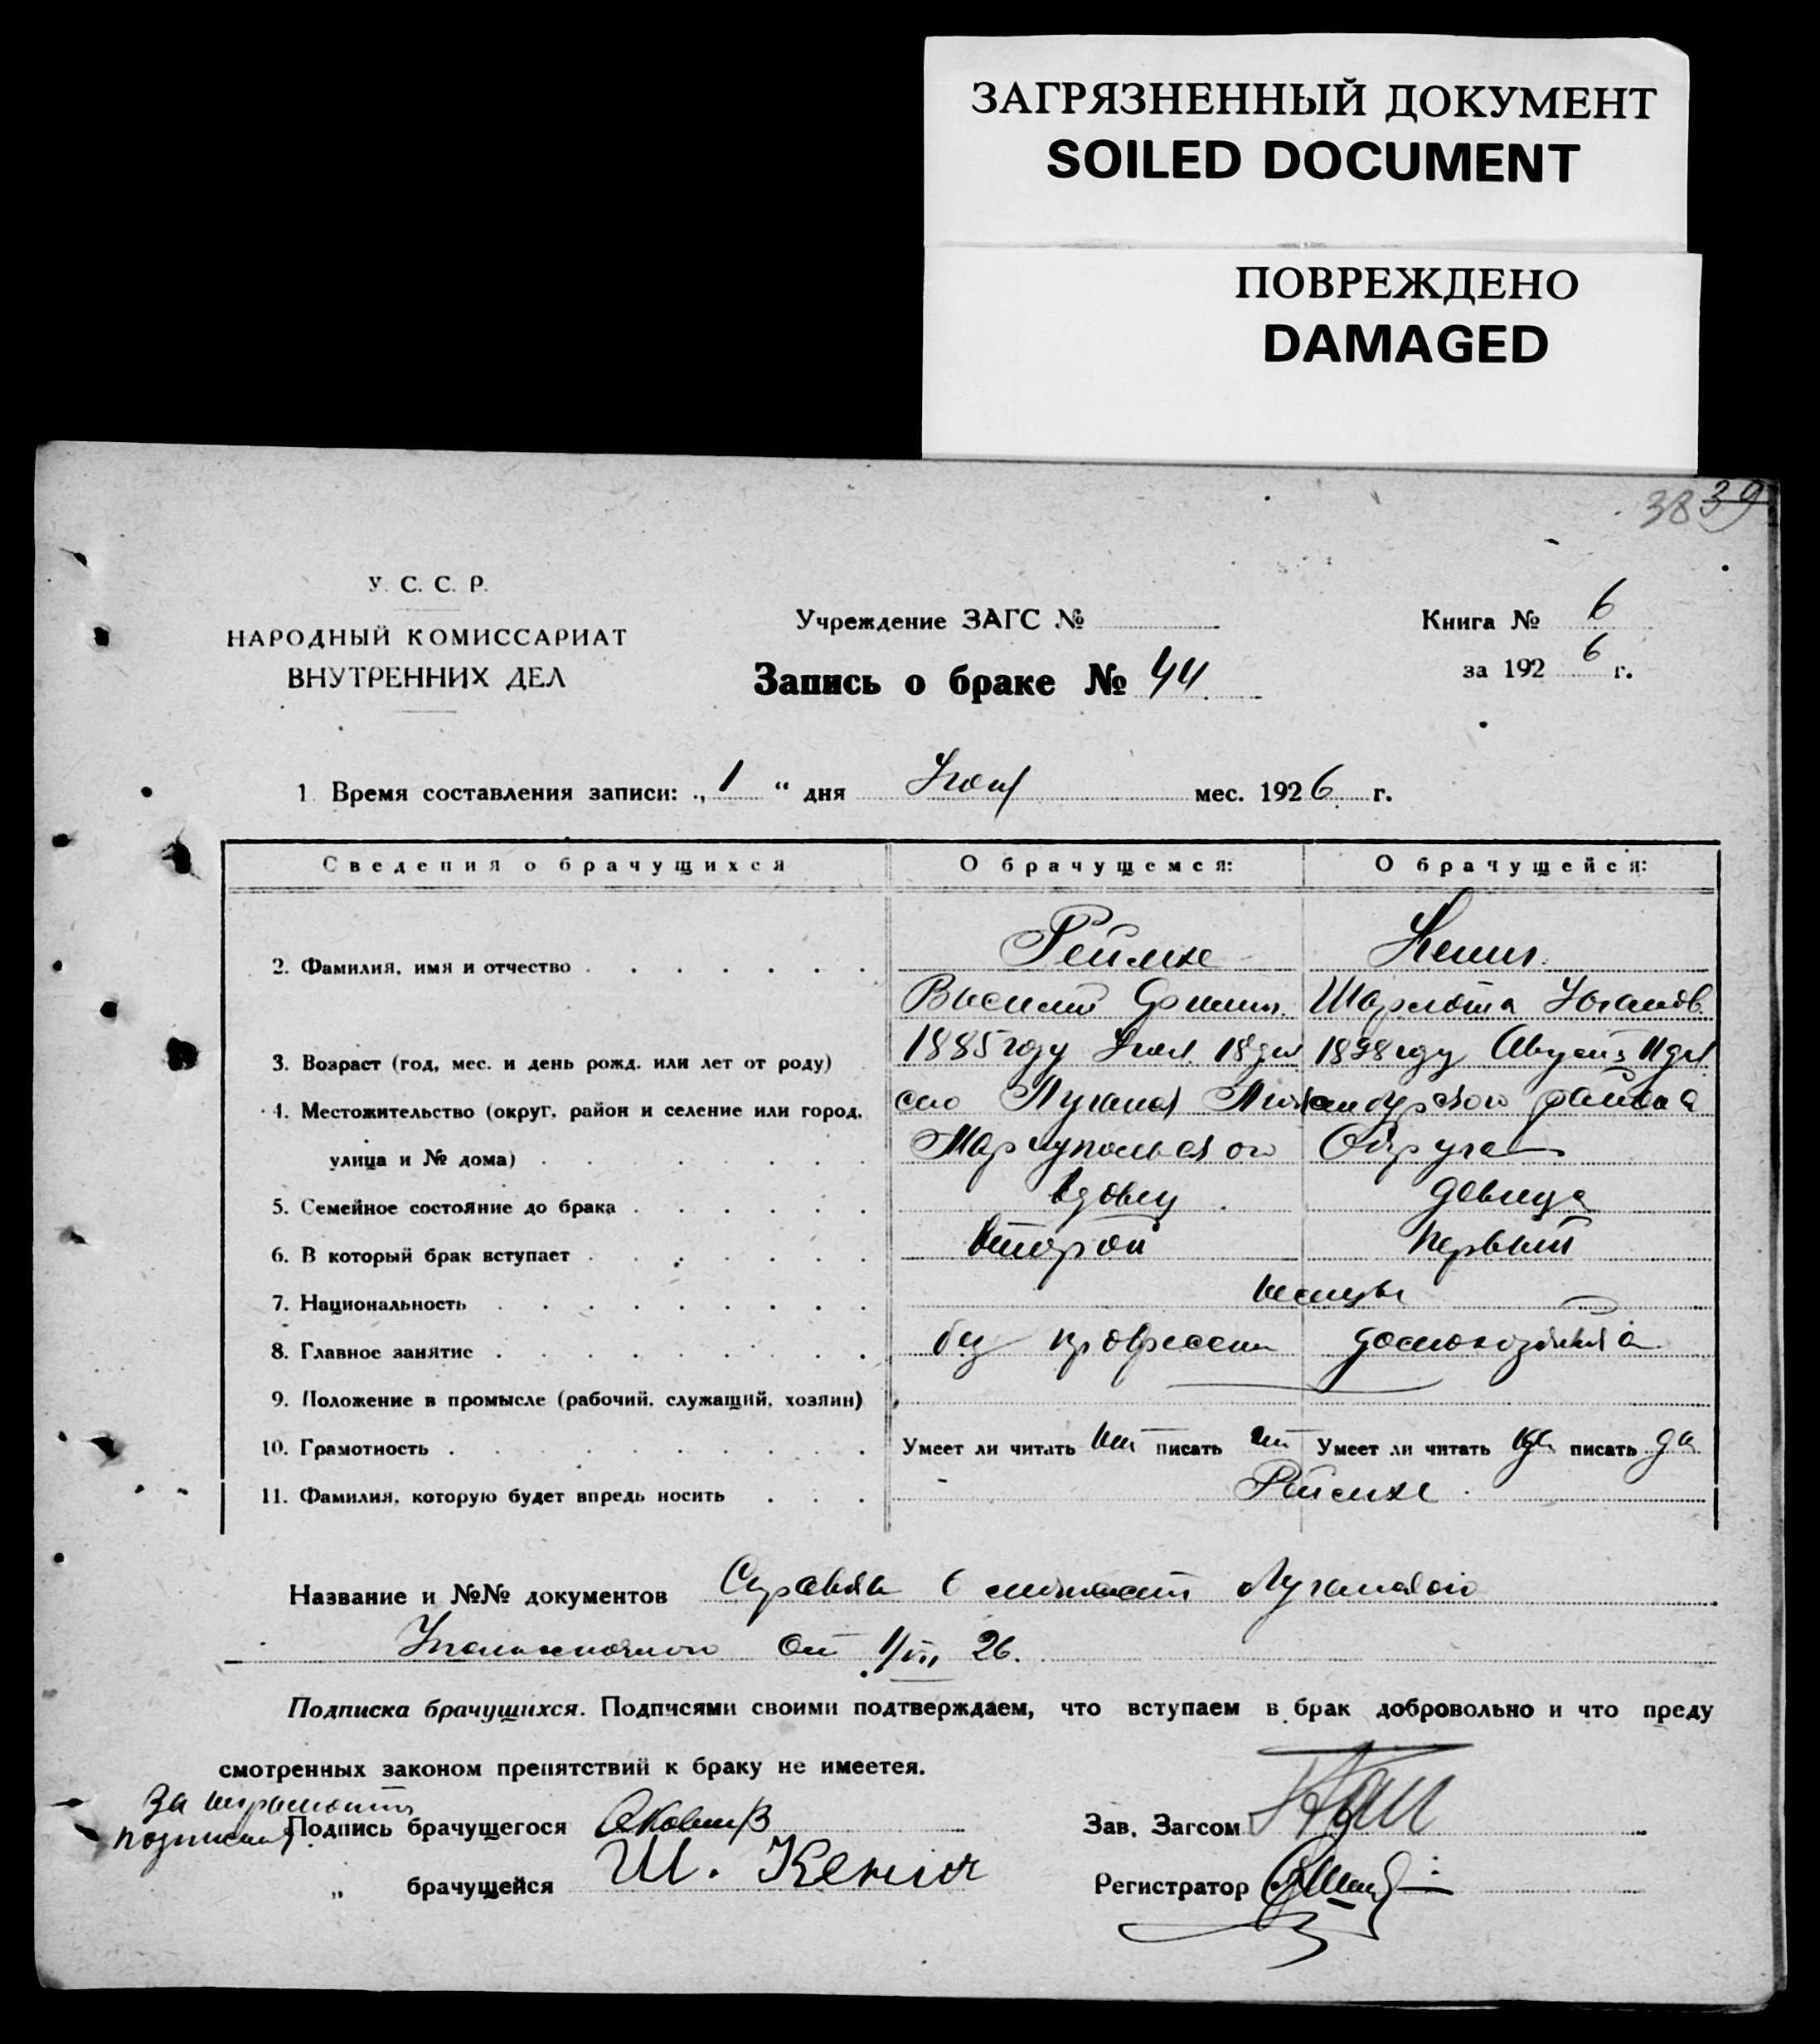 ЗАГРЯЗНЕННЫЙ ДОКУМЕНТ
SOILED DOCUMENT
ПОВРЕЖДЕНО
DAMAGED
38 39
У. С. С. Р.
НАРОДНЫЙ КОМИССАРИАТ
ВНУТРЕННИХ ДЕЛ
Учреждение ЗАГС №
Запись о браке № 44
Книга № 6
за 192 6 г.
1. Время составления записи: „ 1 “ дня мес. 192 6 г.
Сведения о брачущихся
О брачущемся:
О брачущейся:
2. Фамилия, имя и отчество
Василий
Шарлота
3. Возраст (год, мес. и день рожд. или лет от роду)
1885 году 18 дня
1898 году Август 11 дня
4. Местожительство (округ, район и селение или город,
село района
улица и № дома)
Мариупольского Округа
5. Семейное состояние до брака
вдовец
девица
6. В который брак вступает
второй
первый
7. Национальность
немцы
8. Главное занятие
без профессии
домохозяйка
9. Положение в промысле (рабочий, служащий, хозяин)
10. Грамотность
Умеет ли читать нет писать нет
Умеет ли читать да писать да
11. Фамилия, которую будет впредь носить
Название и №№ документов Справка
от 1/VII 26.
Подписка брачущихся. Подписями своими подтверждаем, что вступаем в брак добровольно и что преду
смотренных законом препятствий к браку не имеется.
За
Подпись брачущегося
„ брачущейся Ш.
Зав. Загсом
Регистратор